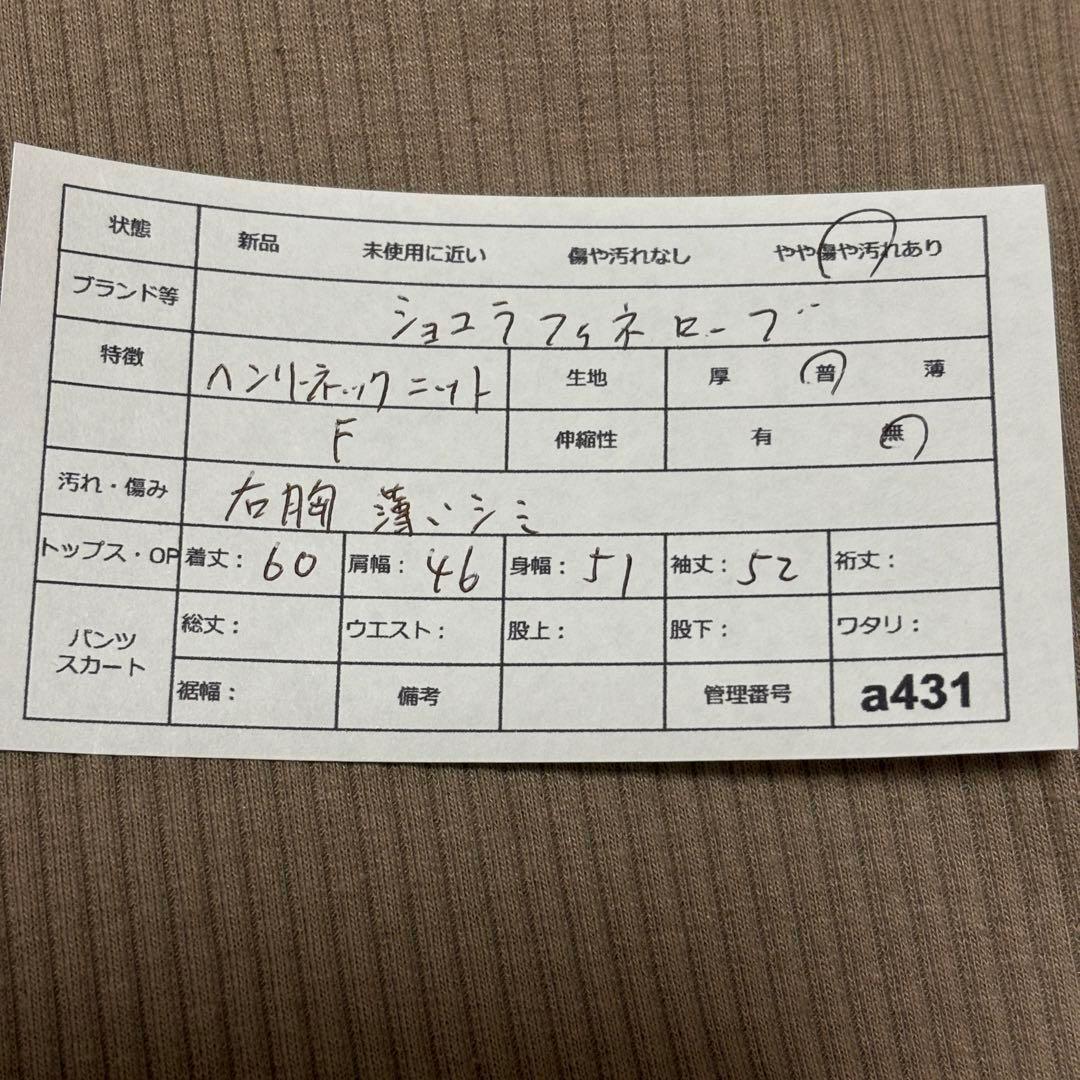 状態 新品 未使用に近い 傷や汚れなし やや傷や汚れあり
ブランド等 ショコラフィネローブ
特徴 ヘンリーネックニット 生地 厚 普 薄
F 伸縮性 有 無
汚れ・傷み 右胸 薄いシミ
トップス・OP 着丈： 60 肩幅： 46 身幅： 51 袖丈： 52 裄丈：
パンツ スカート 総丈： ウエスト： 股上： 股下： ワタリ：
裾幅： 備考 管理番号 a431